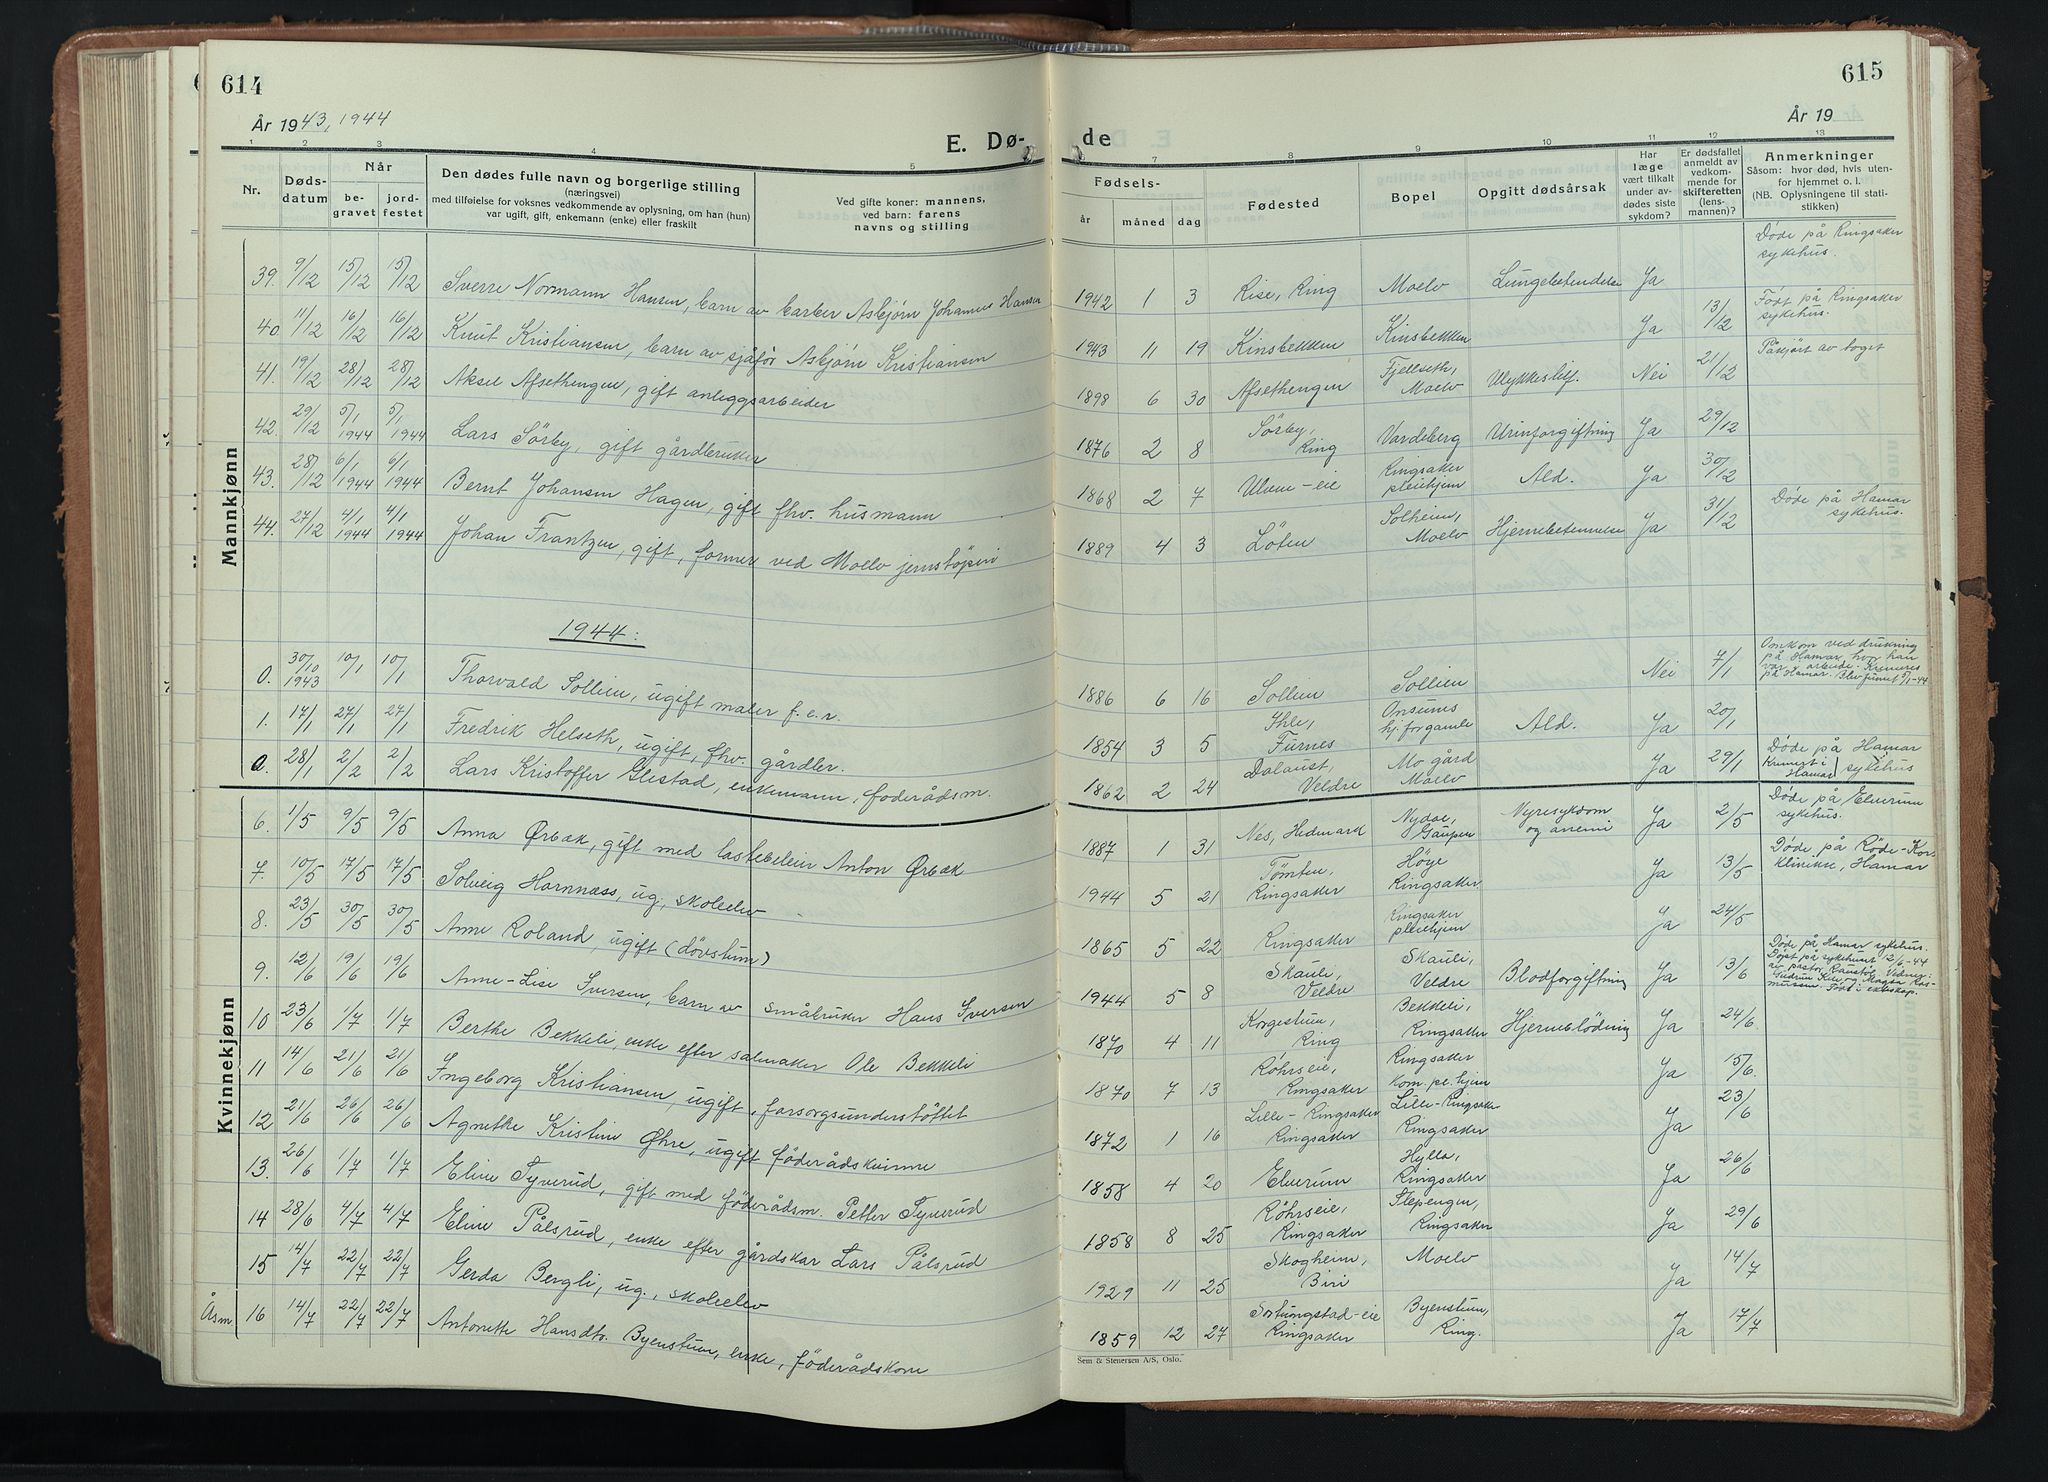 614
År 1943, 1944
E. Dø-
1 2 3 4 5
Nr. Døds-datum Når be-gravet jord-festet
Den dødes fulle navn og borgerlige stilling
(næringsvei)
med tilføielse for voksnes vedkommende av oplysning, om han (hun)
var ugift, gift, enkemann (enke) eller fraskilt
Ved gifte koner: mannens,
ved barn: farens
navns og stilling
Mannkjønn
39. 9/12 15/12 15/12 Sverre Normann Hansen, barn av barber Asbjørn Johannes Hansen
40 11/12 16/12 16/12 Knut Kristiansen, barn av sjåfør Asbjørn Kristiansen
41. 19/12 28/12 28/12 Aksel Afsethengen, gift anleggsarbeider
42. 29/12 5/1 1944 5/1 1944 Lars Sörby, gift gårdbruker
43. 28/12 6/1 1944 6/1 1944 Bernt Johansen Hagen, gift fhv. husmann
44. 27/12 4/1 1944 4/1 1944 Johan Frantzen, gift, former ved Moelv jernstöperi
1944:
0. 30/10 1943 10/1 10/1 Thorvald Sollien, ugift maler f.e.r.
1. 17/1 27/1 27/1 Fredrik Helseth, ugift, fhv. gårdbr.
0. 28/1 2/2 2/2 Lars Kristoffer Glestad, enkemann, föderådsm.
Kvinnekjønn
6. 1/5 9/5 9/5 Anna Ørbæk, gift med lastebileier Anton Ørbæk
7. 10/5 17/5 17/5 Solveig Hornnæss, ug., skoleelev
8. 23/5 30/5 30/5 Anne Roland, ugift (dövstum)
9. 12/6 19/6 19/6 Anne-Lise Iversen, barn av småbruker Hans Iversen
10 23/6 1/7 1/7 Berthe Bekkeli, enke efter salmaker Ole Bekkeli
11 14/6 21/6 21/6 Ingeborg Kristiansen, ugift, forsorgsunderstöttet
12 21/6 26/6 26/6 Agnethe Kristine Øhre, ugift föderådskvinne
13. 26/6 1/7 1/7 Eline Tyverud, gift med föderådsm. Petter Tyverud
14 28/6 4/7 4/7 Eline Pålsrud, enke efter gårdskar Lars Pålsrud
15 14/7 22/7 22/7 Gerda Bergli, ug., skoleelev
Åsm 16 14/7 22/7 22/7 Antonette Hansdtr. Byenstuen, enke, föderådskone
615
År 19
de
7 8 9 10 11 12 13
Fødsels-
år måned dag
Fødested
Bopel
Opgitt dødsårsak
Har læge vært tilkalt under av-dødes siste sykdom?
Er dødsfallet anmeldt av vedkom-mende for skifteretten (lens-mannen)?
Anmerkninger
Såsom: hvor død, hvis uten-
for hjemmet o. l.
(NB. Oplysningene til stati-
stikken)
1942 1 3 Rise, Ring Moelv Lungebetendelse Ja Døde på Ringsaker sykehus.
1943 11 19 Kinsbekken Kinsbekken Ja 13/12 Født på Ringsaker sykehus.
1898 6 30 Afsethengen Fjellseth, Moelv Ulykkestilf. Nei 21/12 Påkjørt av toget
1876 2 8 Sørby, Ring Vardeberg Urinforgiftning Ja 29/12
1868 2 7 Ulven-eie Ringsaker pleiehjem Ald. Ja 30/12
1889 4 3 Löten Solheim, Moelv Hjernebetennelse Ja 31/12 Døde på Hamar sykehus.
1886 6 16 Sollien Sollien Nei 7/1 Omkom ved drukning på Hamar, hvor han var i arbeide. Kremeres på Hamar. Blev funnet 5/1-44
1854 3 5 Ihle, Furnes Onsums hj. for gamle Ald. Ja 20/1
1862 2 24 Dalaust, Veldre Mo gård Moelv Ja 29/1 Døde på Hamar sykehus Kremert i Hamar
1887 1 31 Nes, Hedmark Nydae, Gaupen Nyresykdom og anemi Ja 2/5 Døde på Elverum sykehus.
1944 5 21 Tömten, Ringsaker Höye Ringsaker Ja 13/5 Døde på Røde-Kors klinikk, Hamar
1865 5 22 Ringsaker Ringsaker pleiehjem Ja 24/5
1944 5 8 Skauli, Veldre Skauli, Veldre Blodforgiftning Ja 13/6 Døde på Hamar sykehus. Døpt på sykehuset 12/6-44 av pastor Raustöl. Vidner: Gudrun Kile og Magda Rasmussen. Født i ekteskap.
1870 4 11 Korgestuen, Ring Bekkeli, Ringsaker Hjerneblödning Ja 24/6
1870 7 13 Röhrseie, Ringsaker Ringsaker kom. pl. hjem Ja 15/6
1872 1 16 Lille-Ringsaker Ringsaker Lille-Ringsaker Ringsaker Ja 23/6
1858 4 20 Elverum Hylla, Ringsaker Ja 26/6
1858 8 25 Röhrseie, Ringsaker Stepengen, Ringsaker Ja 29/6
1929 11 25 Skogheim, Biri Moelv Ja 14/7
1859 12 27 Ringsaker Byenstuen, Ring. Ja 17/7
Sem & Stenersen A/S, Oslo.